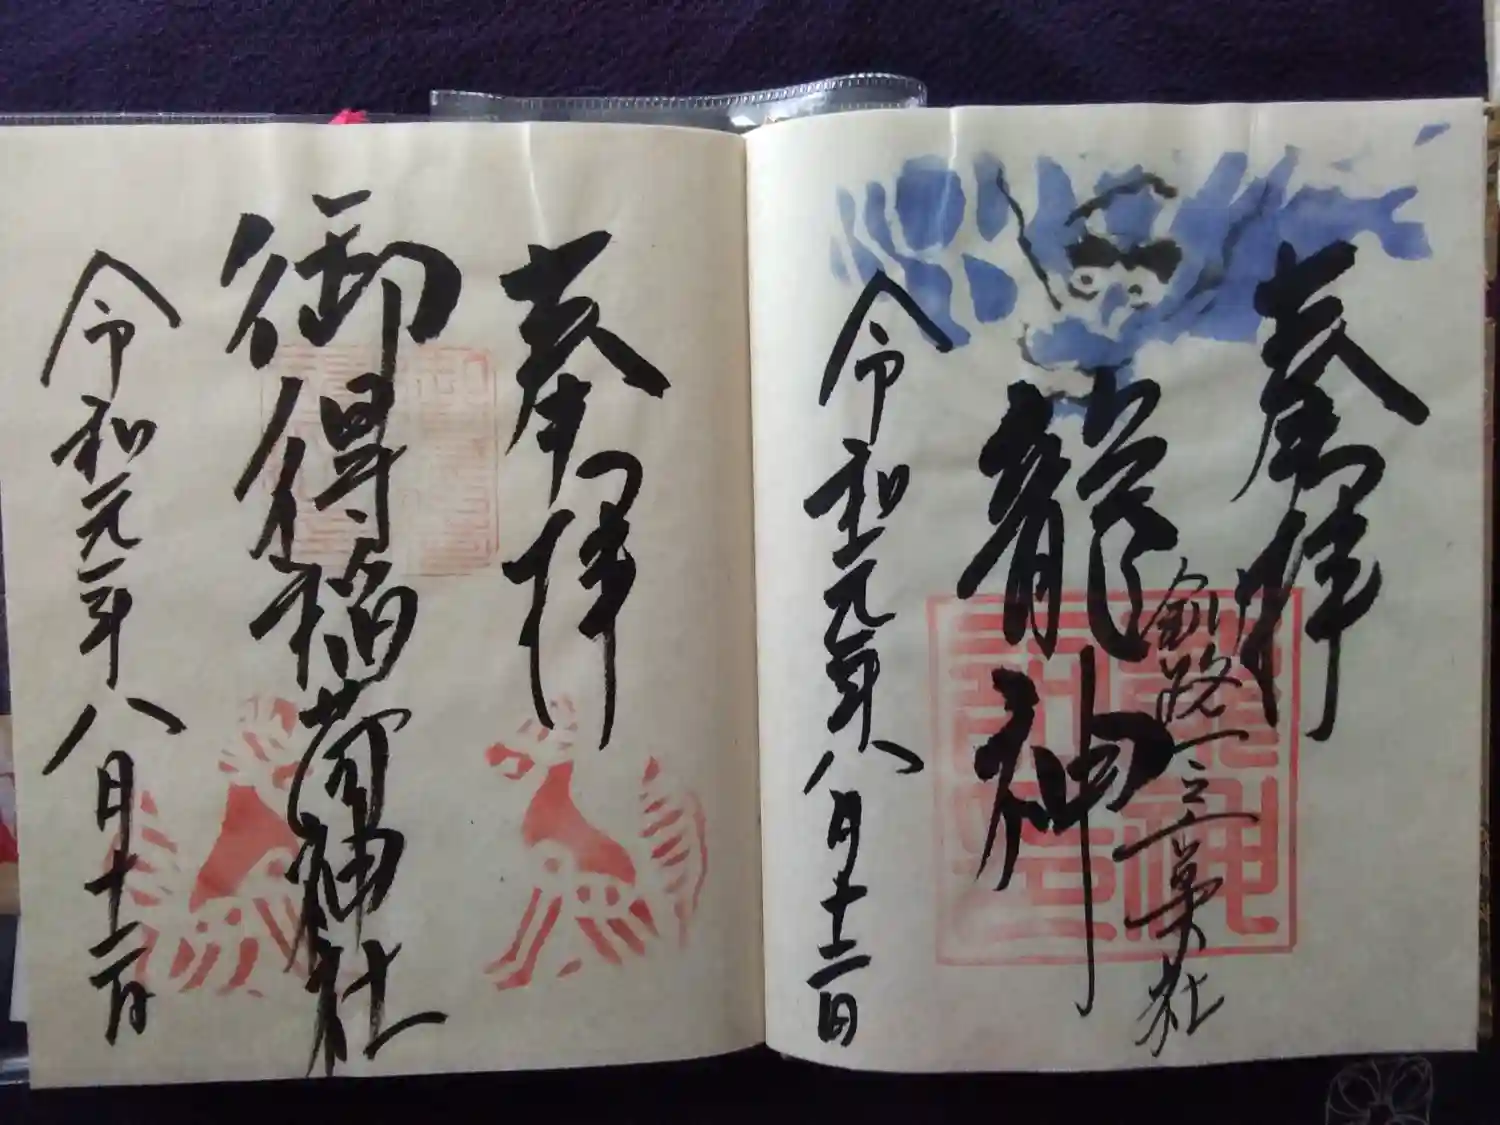 奉拝
龍神
釧路
令和元年八月十二日
奉拝
御得稲荷神社
令和元年八月十二日